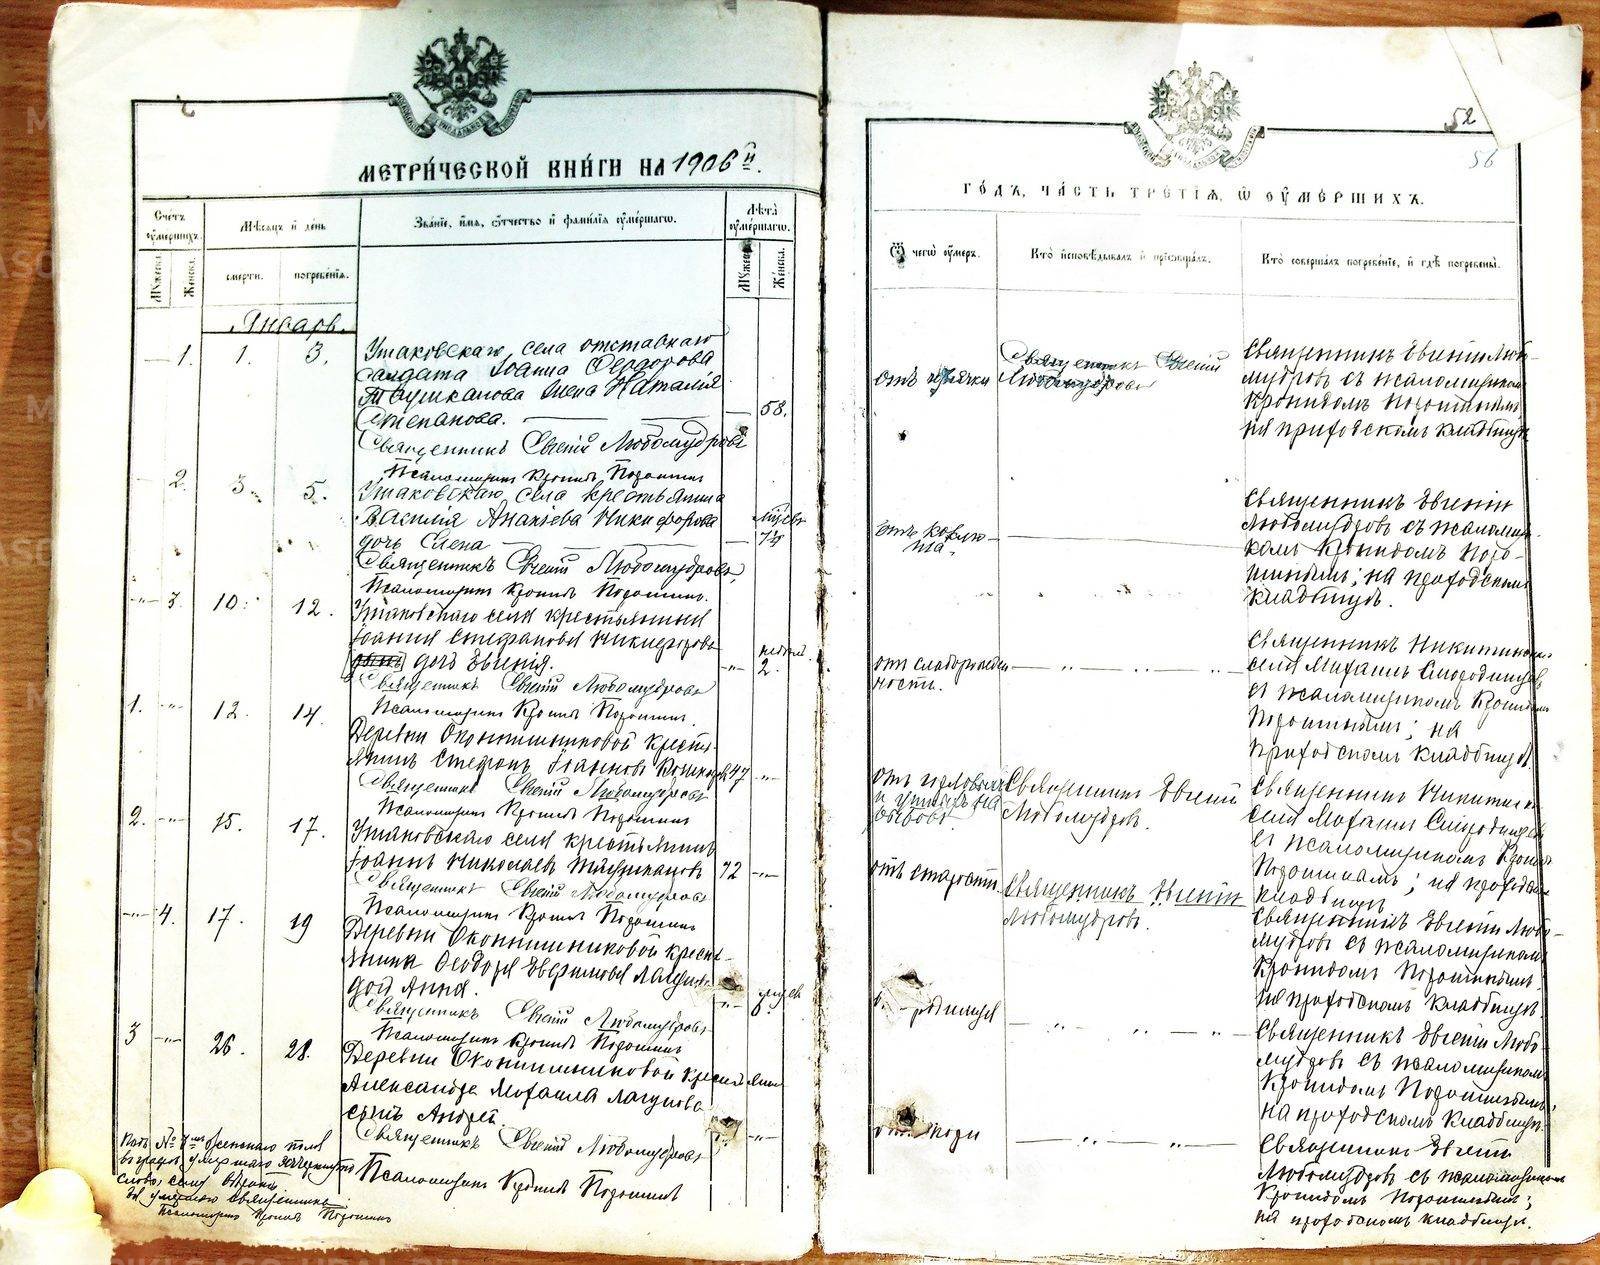 МЕТРИ́ЧЕСКОЙ КНИ́ГИ НА 1906 й.
Сче́тъ оу҆ме́ршихъ.
Мѣ́сяцъ и҆ де́нь
Зва́нїе, и҆́мя, ѻ҆́тчество и҆ фами́лїя оу҆ме́ршагѡ.
Лѣ́та оу҆ме́ршагѡ.
Мꙋ́жеска.
Же́нска.
сме́рти.
погребе́нїя.
Мꙋ́жеска.
Же́нска.
Январь.
— 1. 1. 3.
Ушаковскаго села отставнаго
солдата Іоанна Ѳеодорова
жена Наталія
Степанова. — — 58.
Священникъ Евгеній Любомудровъ
Псаломщикъ Кронидъ Порошинъ
2. 3. 5.
Ушаковскаго села крестьянина
Василія Ананіева Никифорова
дочь Елена —
Священникъ Евгеній Любомудровъ
Псаломщикъ Кронидъ Порошинъ.
-"- 3. 10. 12.
Ушаковскаго села крестьянина
Іоанна Стефанова Никифорова
дочь Евгенія. -"- недѣл. 2.
Священникъ Евгеній Любомудровъ
Псаломщикъ Кронидъ Порошинъ.
1. -"- 12. 14.
Деревни Оконишниковой кресть-
янинъ Стефанъ Іоанновъ 47 -"-
Священникъ Евгеній Любомудровъ
Псаломщикъ Кронидъ Порошинъ
2. -"- 15. 17.
Ушаковскаго села крестьянинъ
Іоаннъ Николаевъ 72 -"-
Священникъ Евгеній Любомудровъ
Псаломщикъ Кронидъ Порошинъ
-"- 4. 17. 19
Деревни Оконишниковой кресть-
янина Ѳеодора Евфимова
дочь Анна. -"-
Священникъ Евгеній Любомудровъ
Псаломщикъ Кронидъ Порошинъ
3 -"- 26. 28.
Деревни Оконишниковой крестьянина
Александра Михаила Лагунова
сынъ Андрей. -"-
Священникъ Евгеній Любомудровъ
Псаломщикъ Кронидъ Порошинъ
Псаломщикъ Кронидъ Порошинъ
52
56
ГО́ДЪ, ЧА́СТЬ ТРЕ́ТІЯ, Ѡ҆ ОУ҆МЕ́РШИХЪ.
Ѿ чегѡ̀ оу҆́меръ.
Кто̀ и҆сповѣ́дывалъ и҆ прїѡбща́лъ.
Кто̀ соверша́лъ погребе́нїе, и҆ гдѣ̀ погребены̀.
отъ
Священникъ Евгеній
Любомудровъ
Священникъ Евгеній Любо-
мудровъ съ псаломщикомъ
Кронидомъ Порошинымъ
на приходскомъ кладбищѣ
отъ коклю-
ша.
Священникъ Евгеній
Любомудровъ съ псаломщи-
комъ Кронидомъ Поро-
шинымъ; на приходскомъ
кладбищѣ.
отъ слаборожден-
ности.
— " — " —
Священникъ Никитинскаго
села Михаилъ Смородинцевъ
съ псаломщикомъ Кронидомъ
Порошинымъ; на
приходскомъ кладбищѣ.
Священникъ Евгеній
Любомудровъ.
Священникъ Никитинскаго
села Михаилъ Смородинцевъ
съ псаломщикомъ Кронидомъ
Порошинымъ; на приходскомъ
кладбищѣ
отъ старости.
Священникъ Евгеній
Любомудровъ.
Священникъ Евгеній Любо-
мудровъ съ псаломщикомъ
Кронидомъ Порошинымъ,
на приходскомъ кладбищѣ.
родимца
— " — " — "
Священникъ Евгеній Любо-
мудровъ съ псаломщикомъ
Кронидомъ Порошинымъ;
на приходскомъ кладбищѣ.
кори
— " — " —
Священникъ Евгеній
Любомудровъ съ псаломщикомъ
Кронидомъ Порошинымъ;
на приходскомъ кладбищѣ.